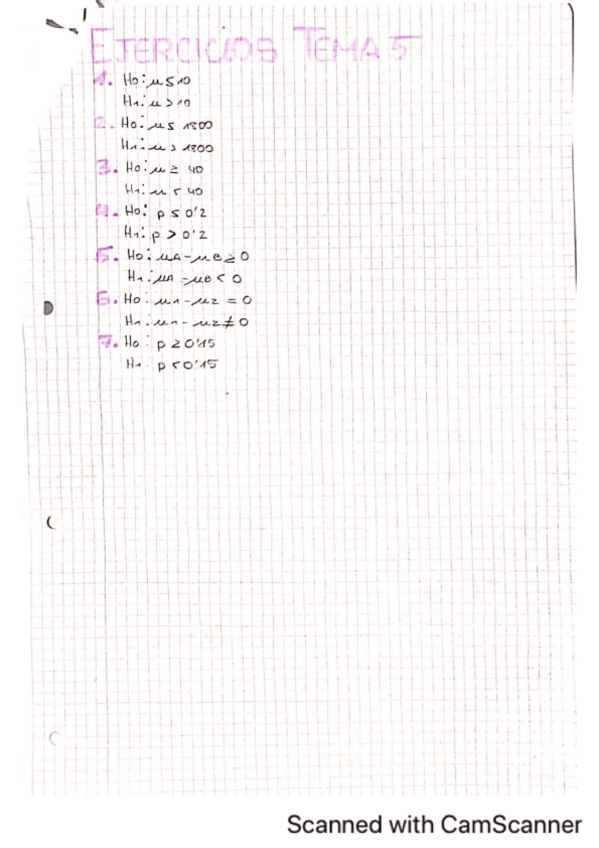 EJERCICIOS TEMA 5
1. Ho: μ ≤ 10
H1: μ > 10
2. Ho: μ ≤ 1800
H1: μ > 1800
3. Ho: μ ≥ 40
H1: μ < 40
4. Ho: p ≤ 0'2
H1: p > 0'2
5. Ho: μA - μB ≥ 0
H1: μA - μB < 0
6. Ho: μ1 - μ2 = 0
H1: μ1 - μ2 ≠ 0
7. Ho: p ≥ 0'15
H1: p < 0'15
Scanned with CamScanner